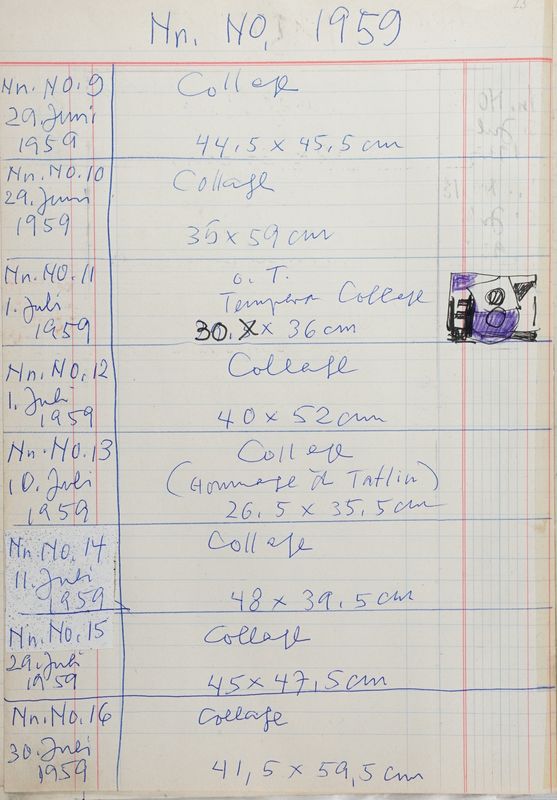 Nn. NO, 1959
Nn. NO. 9
29. Juni
1959
Collage
44,5 x 45,5 cm
Nn. NO. 10
29. Juni
1959
Collage
35 x 59 cm
Nn. NO. 11
1. Juli
1959
o. T.
Tempera Collage
30. x x 36 cm
Nn. NO, 12
1. Juli
1959
Collage
40 x 52 cm
Nn. NO. 13
10. Juli
1959
Collage
(Hommage à Tatlin)
26,5 x 35,5 cm
Nn. NO. 14
11. Juli
1959
Collage
48 x 39,5 cm
Nn. No. 15
29. Juli
1959
Collage
45 x 47,5 cm
Nn. No. 16
30. Juli
1959
Collage
41,5 x 59,5 cm